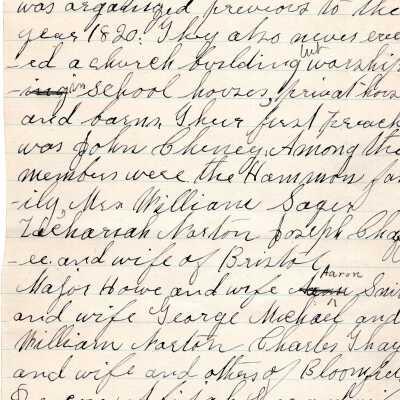 was organized previous to the
year 1820. They also never erec
-ed a church building but worship
-ing in school houses, privat hous
and barns. Their first preach
was John Cheney. Among the
members were the Hammon fam
-ily, Mrs William Sager
Zachariah Norton Joseph Cha
-ee and wife of Bristol
Major Howe and wife Aaron Smi
and wife George Michael and
William Norton Charles Thay
and wife and others of Bloomfie